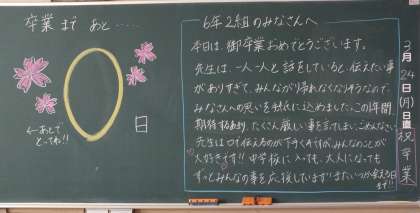 卒業まで あと……
0
日
←あとで
とってね!!
6年2組のみなさんへ
本日は、御卒業おめでとうございます。
先生は、一人一人と話をしていると、伝えたい事
がありすぎて、みんなが帰れなくなりそうなので、
みなさんへの思いを黒板に込めました。この1年間、
期待するあまり、たくさん厳しい事を言ってしまい、ごめんなさい。
先生はいつも伝えるのが下手くそですが、みんなのことが
大好きです!!中学校に入っても、大人になっても
ずっとみんなの事を応援しています!またいつか会える日
まで!!
3月24日(月)日直 祝卒業